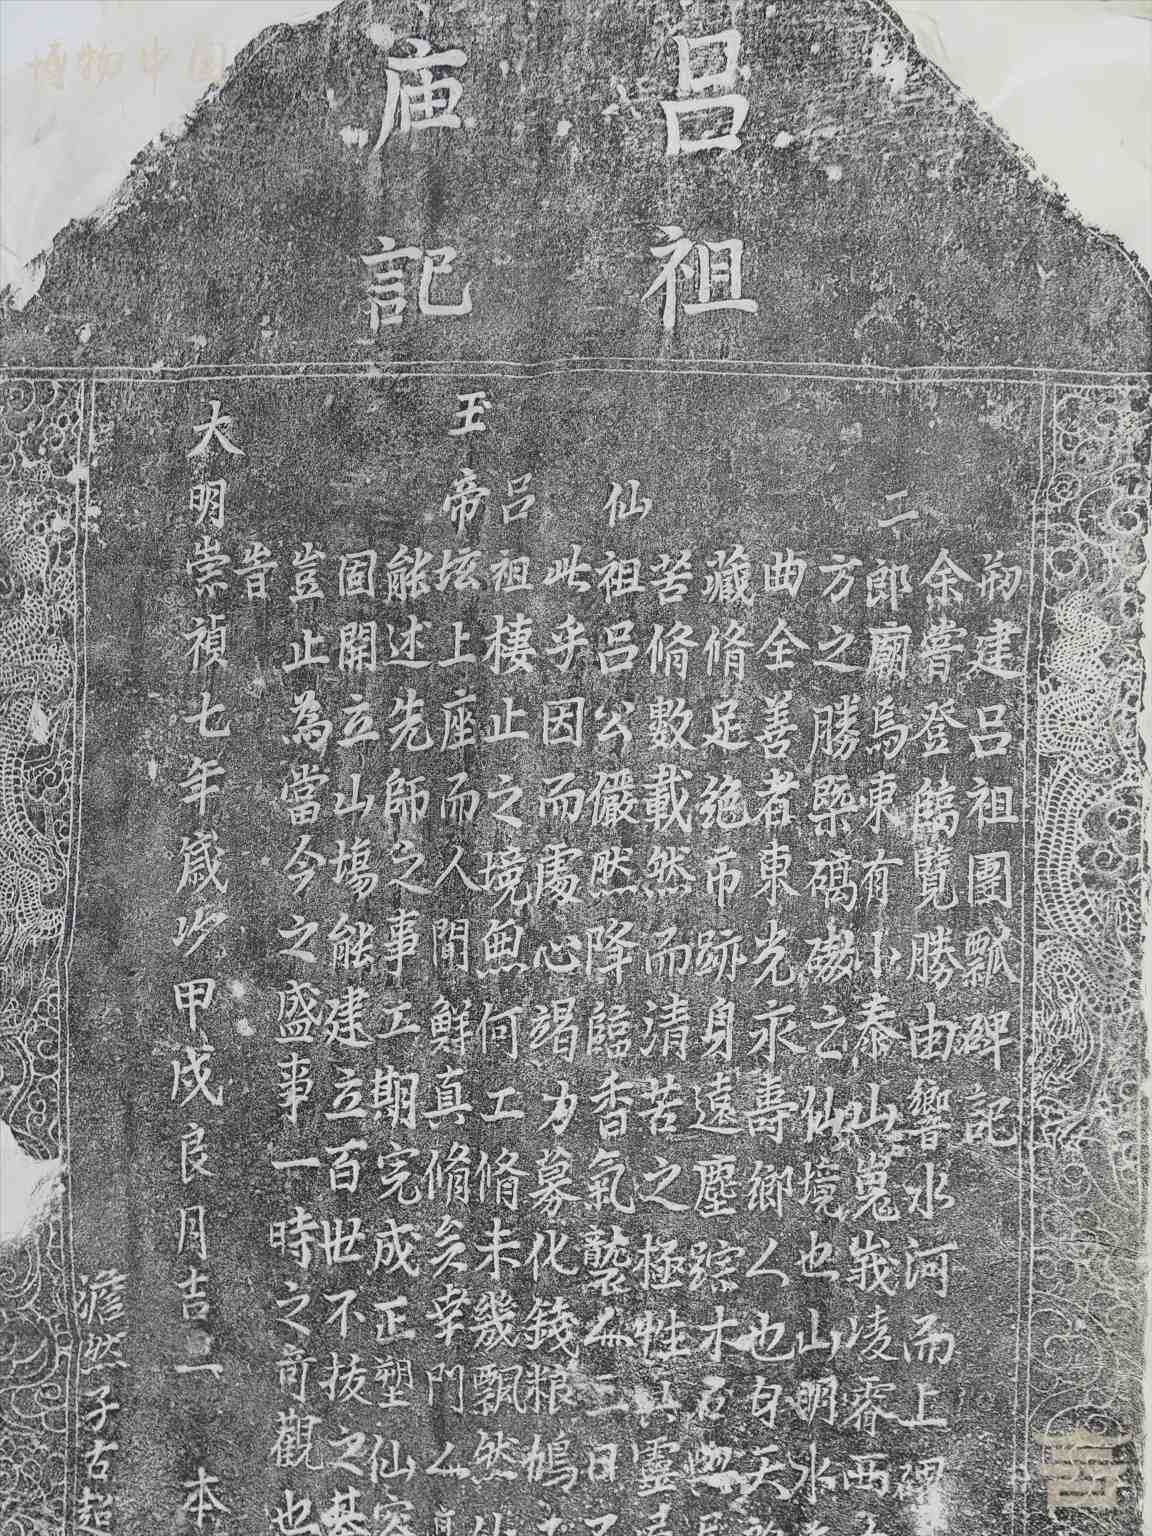 呂祖
庙記
剏建呂祖團瓢碑記
余嘗登臨覽勝由響水河而上禪
二郎廟焉東有小泰山嵬峩凌霄西
方之勝槩礴之仙境也山明水
曲全善者東光永壽鄉人也身天
藏脩足絶市跡身遠塵踪才石
苦脩數載然而清苦之極性真靈
仙祖呂公儼然降臨香氣襲人三日
此乎因而處心竭力募化錢粮鳩
呂祖棲止之境無何工脩未幾飄然
玉帝坛上座而人間鮮真脩矣幸門人
能述先師之事工期完成正塑仙容
固開立山塲能建立百世不拔之基
豈止為當今之盛事一時之奇觀也
旹
大明崇禎七年歲次甲戌良月吉一本
澹然子古趙
博物中国